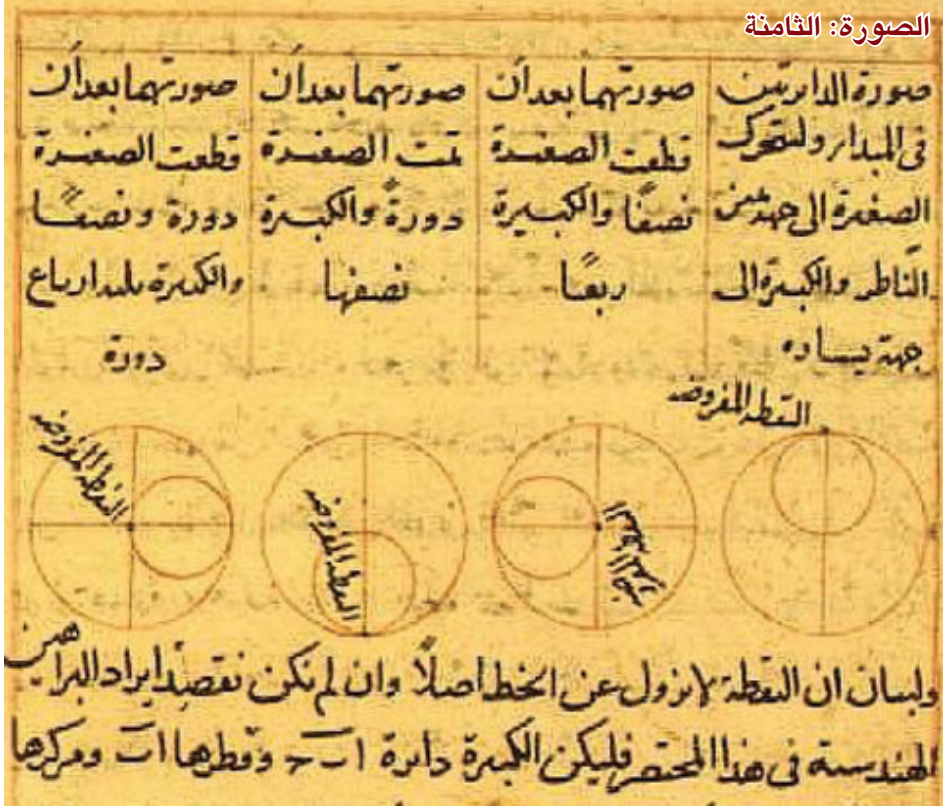 الصورة: الثامنة
صورة الدائرتين
في المبدأ ولتتحرك
الصغيرة إلى جهة يمين
الناظر والكبيرة إلى
جهة يساره
صورتهما بعد أن
قطعت الصغيرة
نصفًا والكبيرة
ربعًا
صورتهما بعد أن
تمت الصغيرة
دورةً والكبيرة
نصفها
صورتهما بعد أن
قطعت الصغيرة
دورة ونصفًا
والكبيرة ثلثة ارباع
دورة
النقطة المفروضة
النقطة المفروضة
النقطة المفروضة
النقطة المفروضة
ولبيان ان النقطة لا تزول عن الخط اصلًا وان لم نكن نقصد ايراد البراهين
الهندسية في هذا المختصر فليكن الكبيرة دائرة ا ب ج وقطرها ا ب ومركزها